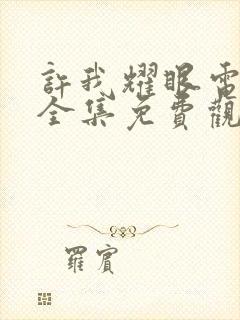 許我耀眼電
全集免費觀
羅賓